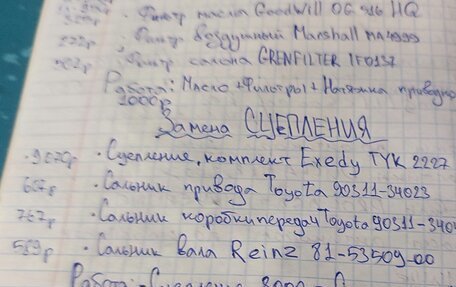 · Фильтр масла Goodwill OG 916 HQ
272р · Фильтр воздушный Marshall MA4999
502р · Фильтр салона GRENFILTER IF0137
Работа: Масло + Фильтры + Натяжка приводно
1000р
Замена СЦЕПЛЕНИЯ
· Сцепление, комплект Exedy TYK 2227
· Сальник привода Toyota 90311-34023
767р · Сальник коробки передач Toyota 90311-
589р · Сальник вала Reinz 81-53509-00
Работа: